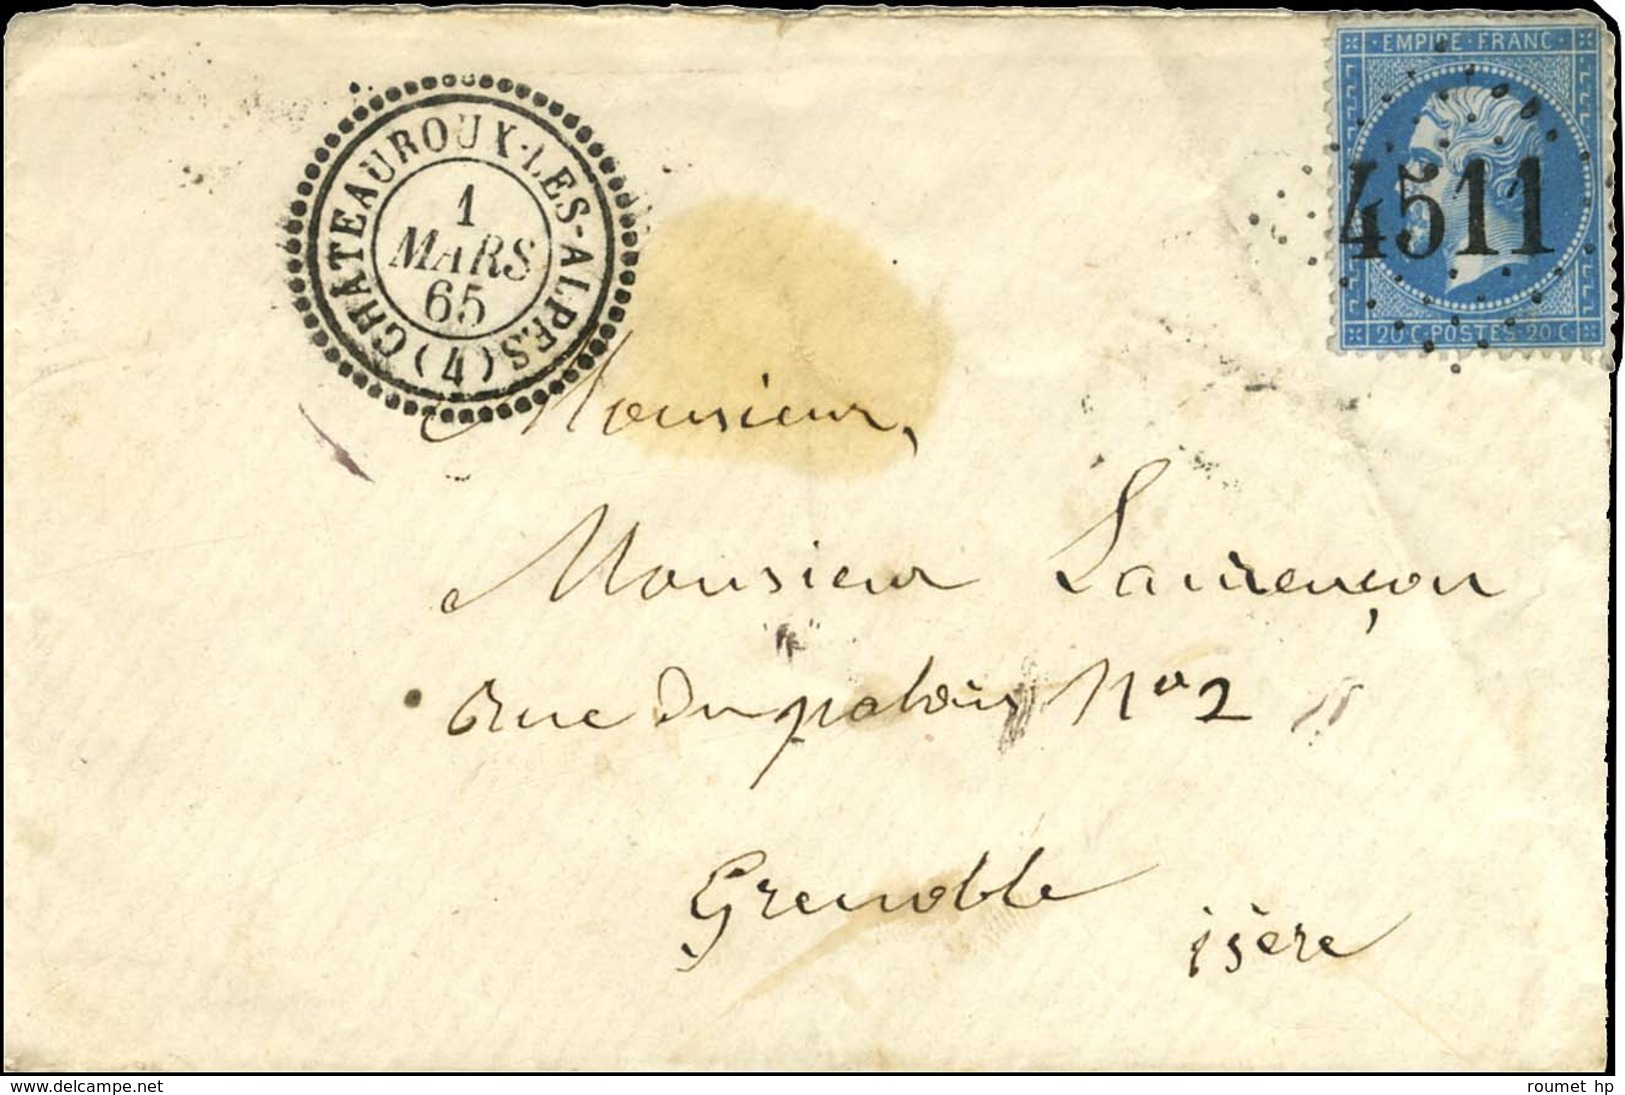 CHÂTEAUROUX-LES-ALPES (4)
1
MARS
65
EMPIRE FRANC
4511
20 C POSTES 20 C
Monsieur,
Monsieur Laurençon
Rue du palais No 2
Grenoble
isère
www.delcampe.net
roumet hp